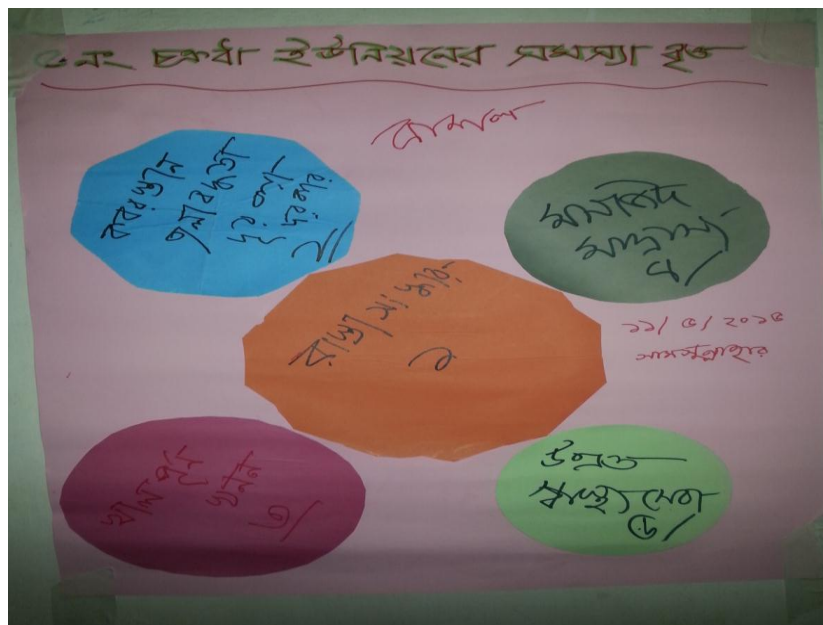 ৫নং চক্রধা ইউনিয়নের সমস্যা বৃত্ত
কবরস্থান
জলাবদ্ধতা
দূর করা
দরকার
২/
মসজিদ
মাদ্রাসা
৪/
রাস্তা সংস্কার
১
১১/৫/২০১৫
সামসুন্নাহার
খাল পূন
খনন
৩/
উন্নত
স্বাস্থ্য সেবা
৫/